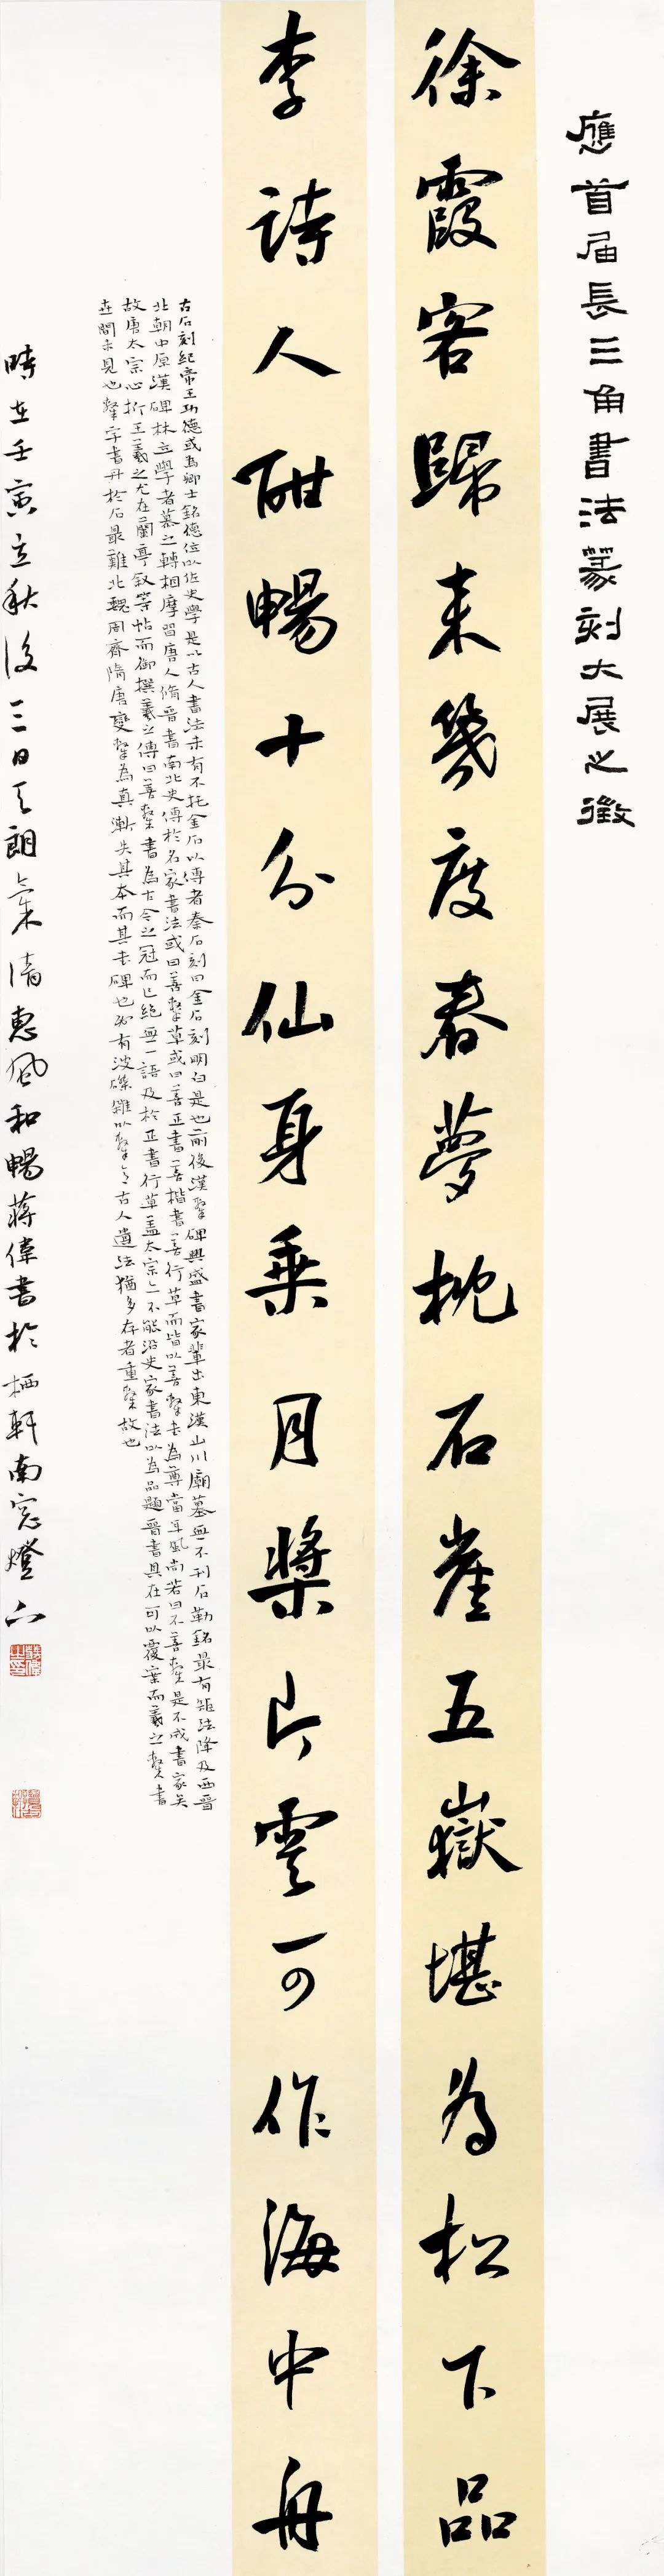 應首届長三角書法篆刻大展之徵
徐霞客歸来幾度春夢枕石崖五嶽堪為松下品
李詩人酣暢十分仙身乗月槳片雲可作海中舟
古石刻紀帝王功德或為卿士銘德位以佐史學是以古人書法未有不托金石以傳者秦石刻曰金石刻明白是也前後漢隸碑興盛書家輩出東漢山川廟墓無不刊石勒銘最有矩法降及西晋
北朝中原漢碑林立學者慕之轉相摩習唐人脩晋書南北史傳於名家書法或曰善隸草或曰善正書善楷書善行草而皆以善隸書為尊當年風尚若曰不善隸是不成書家矣
故唐太宗心折王羲之尤在蘭亭叙等帖而御撰羲之傳曰善隸書為古今之冠而已絶無一語及於正書行草盖太宗亦不能沿史家書法以為品題晋書具在可以覆案而羲之隸書
世間未見也隸字書丹於石最難北魏周齊隋唐變隸為真漸失其本而其書碑也必有波磔雜以隸意古人遺法猶多存者重隸故也
時在壬寅立秋後三日天朗氣清惠風和暢蒋偉書於栖軒南窓燈下